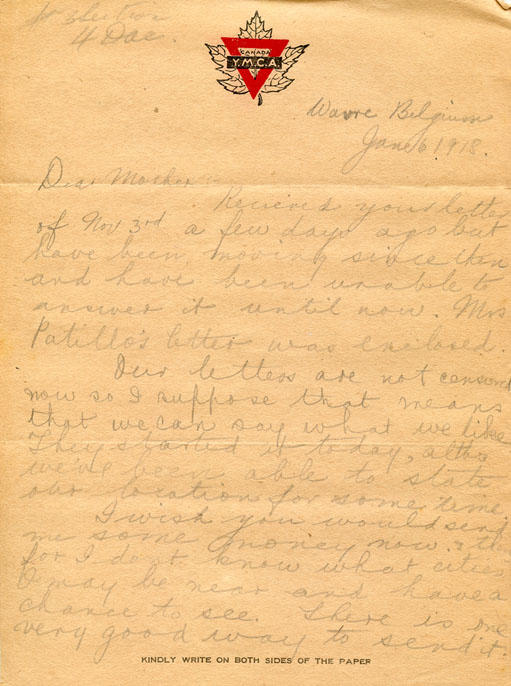 Section
4 Dac.
CANADA
Y.M.C.A
Wavre Belgium
Jan 6 1918.
Dear Mother
Recieved your letter
of Nov 3rd a few days ago but
have been moving since then
and have been unable to
answer it until now. Mrs
Patillo's letter was enclosed.
Our letters are not censored
now so I suppose that means
that we can say what we like
They started it today, altho
we've been able to state
our location for some time.
I wish you would send
me some money now &
for I don't know what cities
I may be near and have a
chance to see. There is one
very good way to send it.
KINDLY WRITE ON BOTH SIDES OF THE PAPER